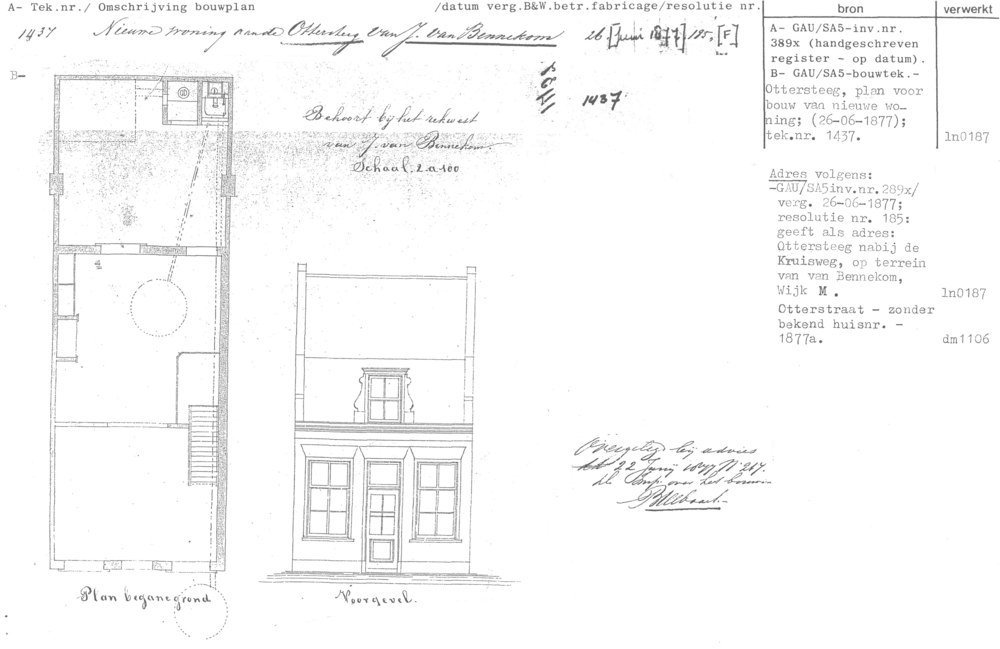 A- Tek.nr./ Omschrijving bouwplan /datum verg.B&W.betr.fabricage/resolutie nr.
1437 Nieuwe woning aan de Ottersteg van J. van Bennekom 26 [Juni 1877] 185, [F]
B-
1437
Behoort bij het rekwest
van J. van Bennekom.
Schaal. 1 a 100
Plan beganegrond
Voorgevel.
Overgelegd bij advies
22 Junij 1877 N 217.
over het bouwen
bron
verwerkt
A- GAU/SA5-inv.nr.
389x (handgeschreven
register - op datum).
B- GAU/SA5-bouwtek.-
Ottersteeg, plan voor
bouw van nieuwe wo-
ning; (26-06-1877);
tek.nr. 1437. ln0187
Adres volgens:
-GAU/SA5inv.nr.289x/
verg. 26-06-1877;
resolutie nr. 185:
geeft als adres:
Ottersteeg nabij de
Kruisweg, op terrein
van van Bennekom,
Wijk M. ln0187
Otterstraat - zonder
bekend huisnr. -
1877a. dm1106